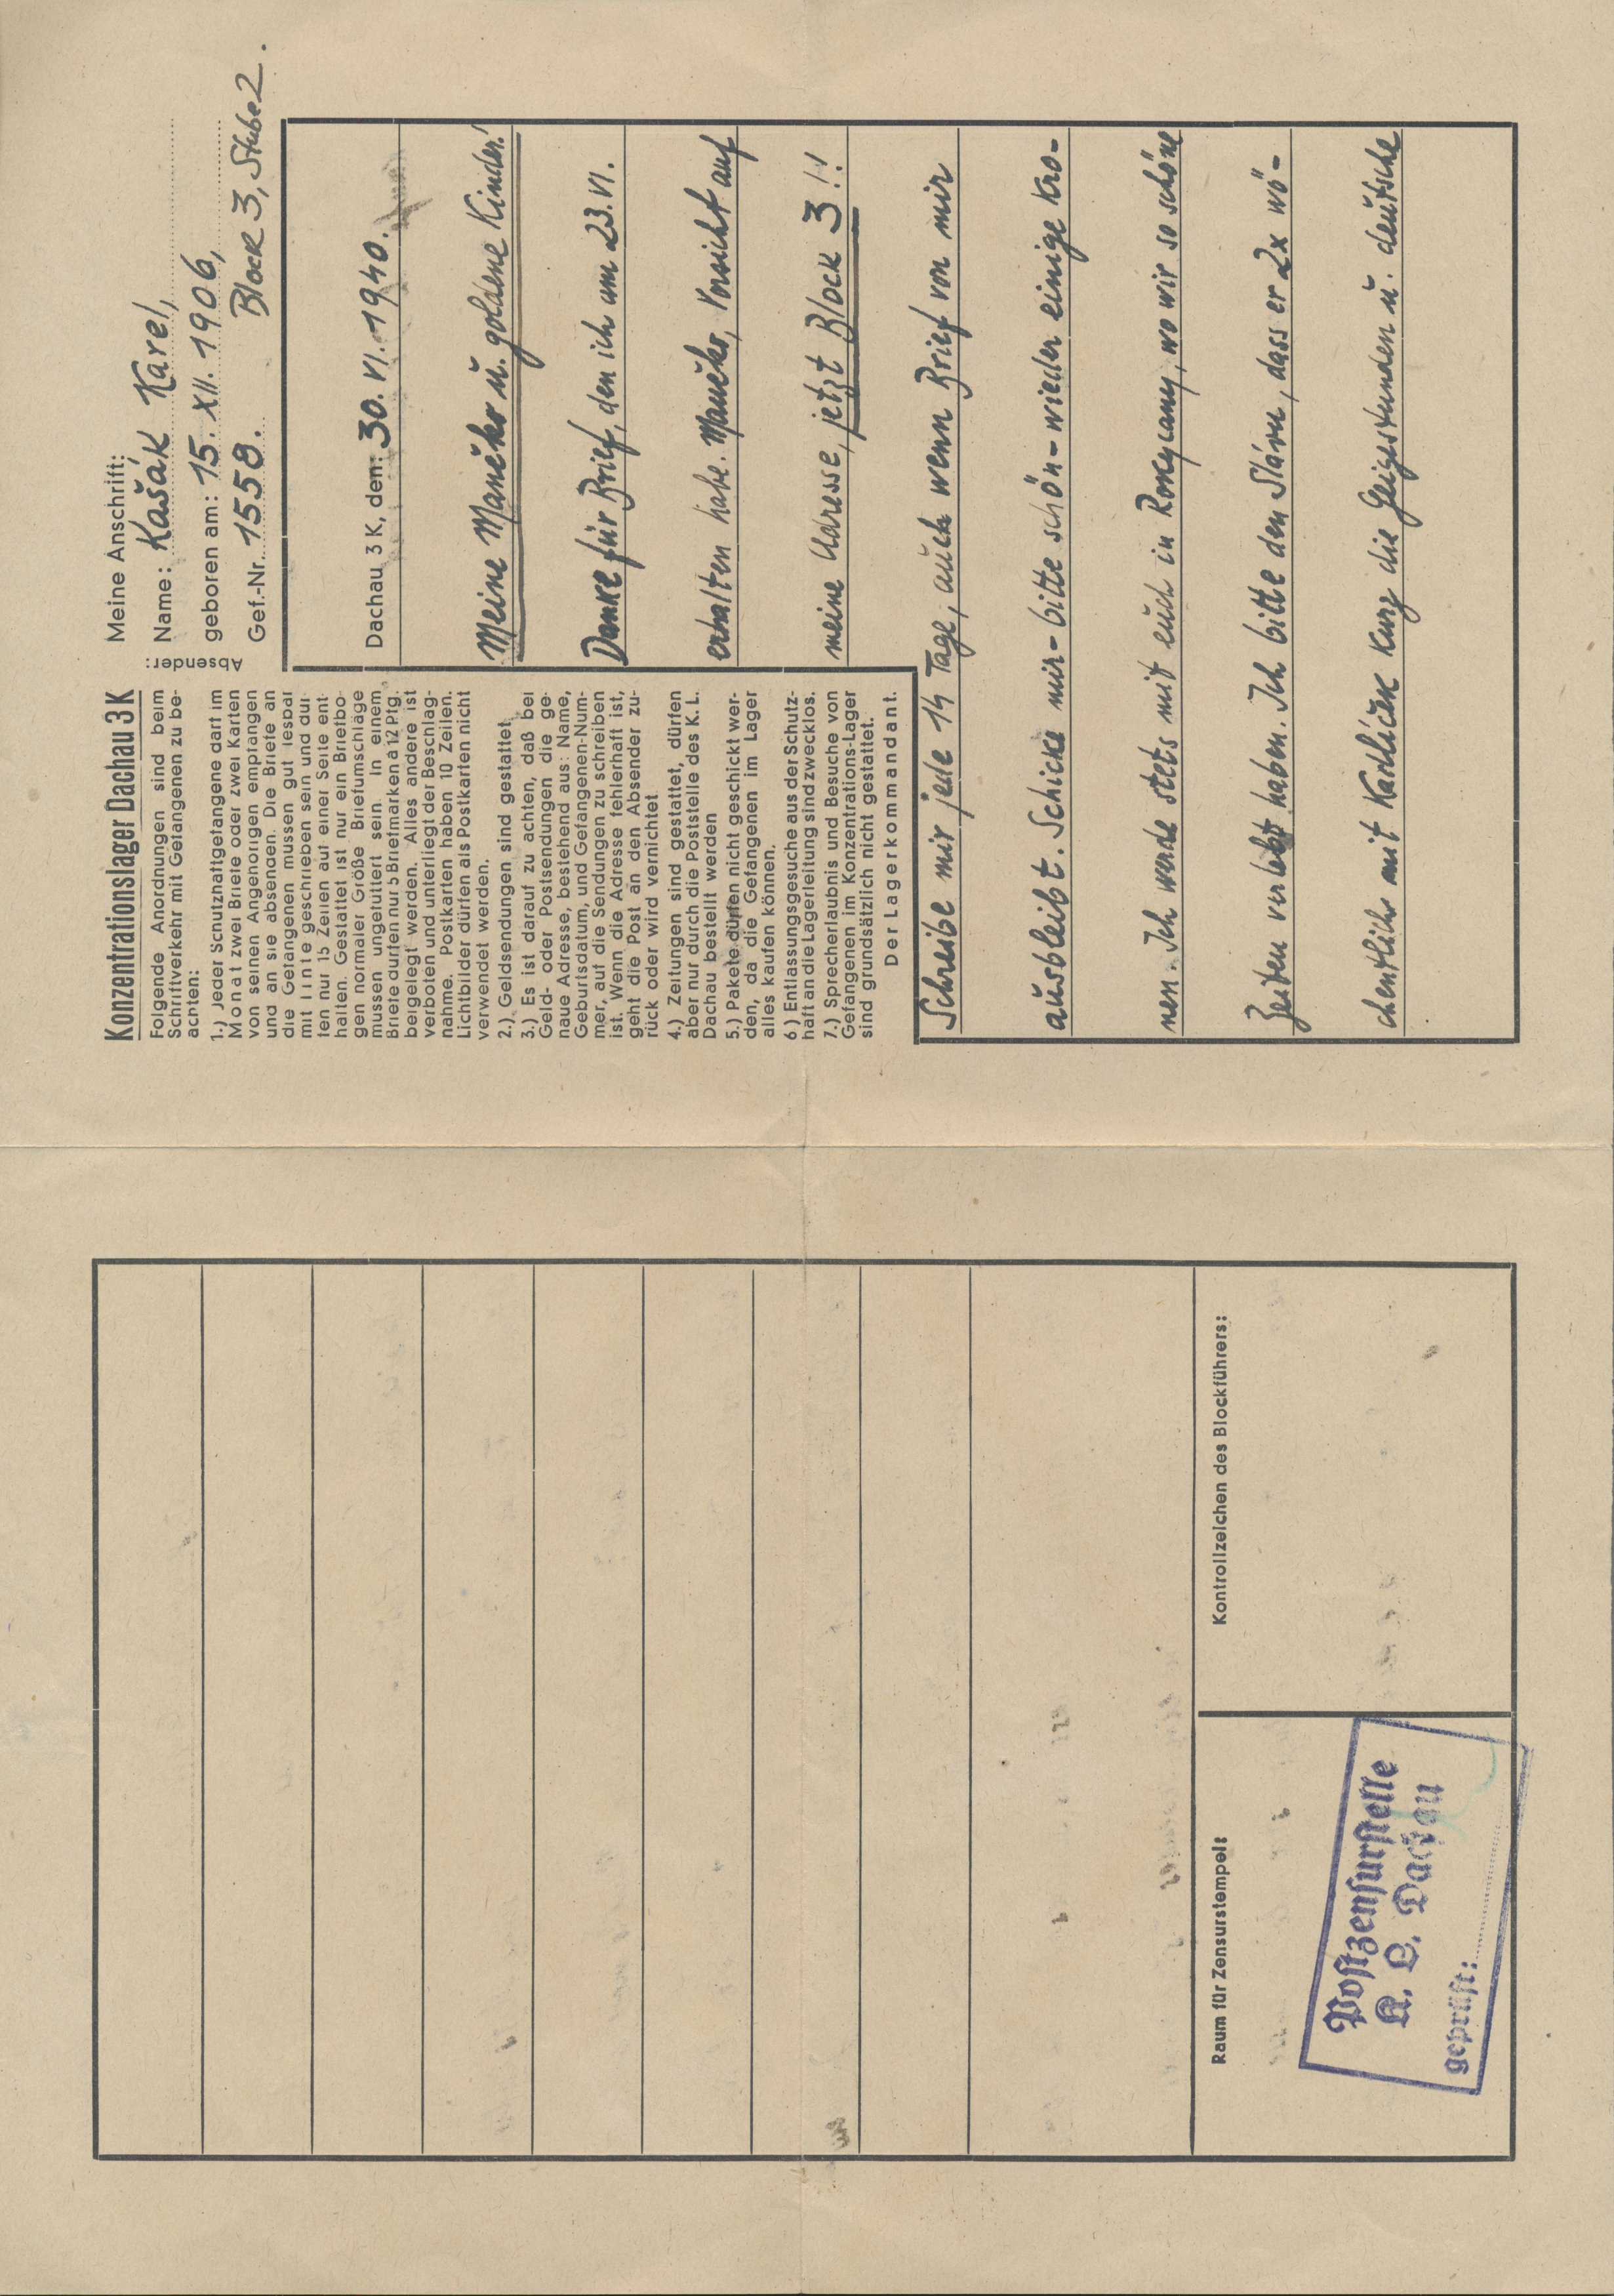 Konzentrationslager Dachau 3 K
Folgende Anordnungen sind beim
Schriftverkehr mit Gefangenen zu be-
achten:
1.) Jeder Schutzhaftgefangene darf im
Monat zwei Briefe oder zwei Karten
von seinen Angehörigen empfangen
und an sie absenden. Die Briefe an
die Gefangenen müssen gut lesbar
mit Tinte geschrieben sein und dür-
fen nur 15 Zeilen auf einer Seite ent-
halten. Gestattet ist nur ein Briefbo-
gen normaler Größe. Briefumschläge
müssen ungefüttert sein. In einem
Briefe dürfen nur 5 Briefmarken à 12 Pfg.
beigelegt werden. Alles andere ist
verboten und unterliegt der Beschlag-
nahme. Postkarten haben 10 Zeilen.
Lichtbilder dürfen als Postkarten nicht
verwendet werden.
2.) Geldsendungen sind gestattet.
3.) Es ist darauf zu achten, daß bei
Geld- oder Postsendungen die ge-
naue Adresse, bestehend aus: Name,
Geburtsdatum, und Gefangenen-Num-
mer, auf die Sendungen zu schreiben
ist. Wenn die Adresse fehlerhaft ist,
geht die Post an den Absender zu-
rück oder wird vernichtet
4.) Zeitungen sind gestattet, dürfen
aber nur durch die Poststelle des K. L.
Dachau bestellt werden
5.) Pakete dürfen nicht geschickt wer-
den, da die Gefangenen im Lager
alles kaufen können.
6) Entlassungsgesuche aus der Schutz-
haft an die Lagerleitung sind zwecklos.
7.) Sprecherlaubnis und Besuche von
Gefangenen im Konzentrations-Lager
sind grundsätzlich nicht gestattet.
Der Lagerkommandant.
Absender:
Meine Anschrift:
Name: Kašák Karel,
geboren am: 15. XII. 1906,
Gef.-Nr. 1558. Block 3, Stube 2.
Dachau 3 K, den: 30. VI. 1940.
Meine Maučko u. goldene Kinder!
Danke für Brief, den ich am 23. VI.
erhalten habe. Maučko, Vorsicht auf
meine Adresse, jetzt Block 3!!
Schreibe mir jede 14 Tage, auch wenn Brief von mir
ausbleibt. Schicke mir - bitte schön - wieder einige Kro-
nen. Ich werde stets mit euch in Rokycany, wo wir so schöne
Zeiten verlebt haben. Ich bitte den Slávu, dass er 2x wö-
chentlich mit Karlíček kurz die Geigestunden u. deutsche
Raum für Zensurstempel:
Kontrollzeichen des Blockführers:
Postzensurstelle
K. L. Dachau
geprüft: